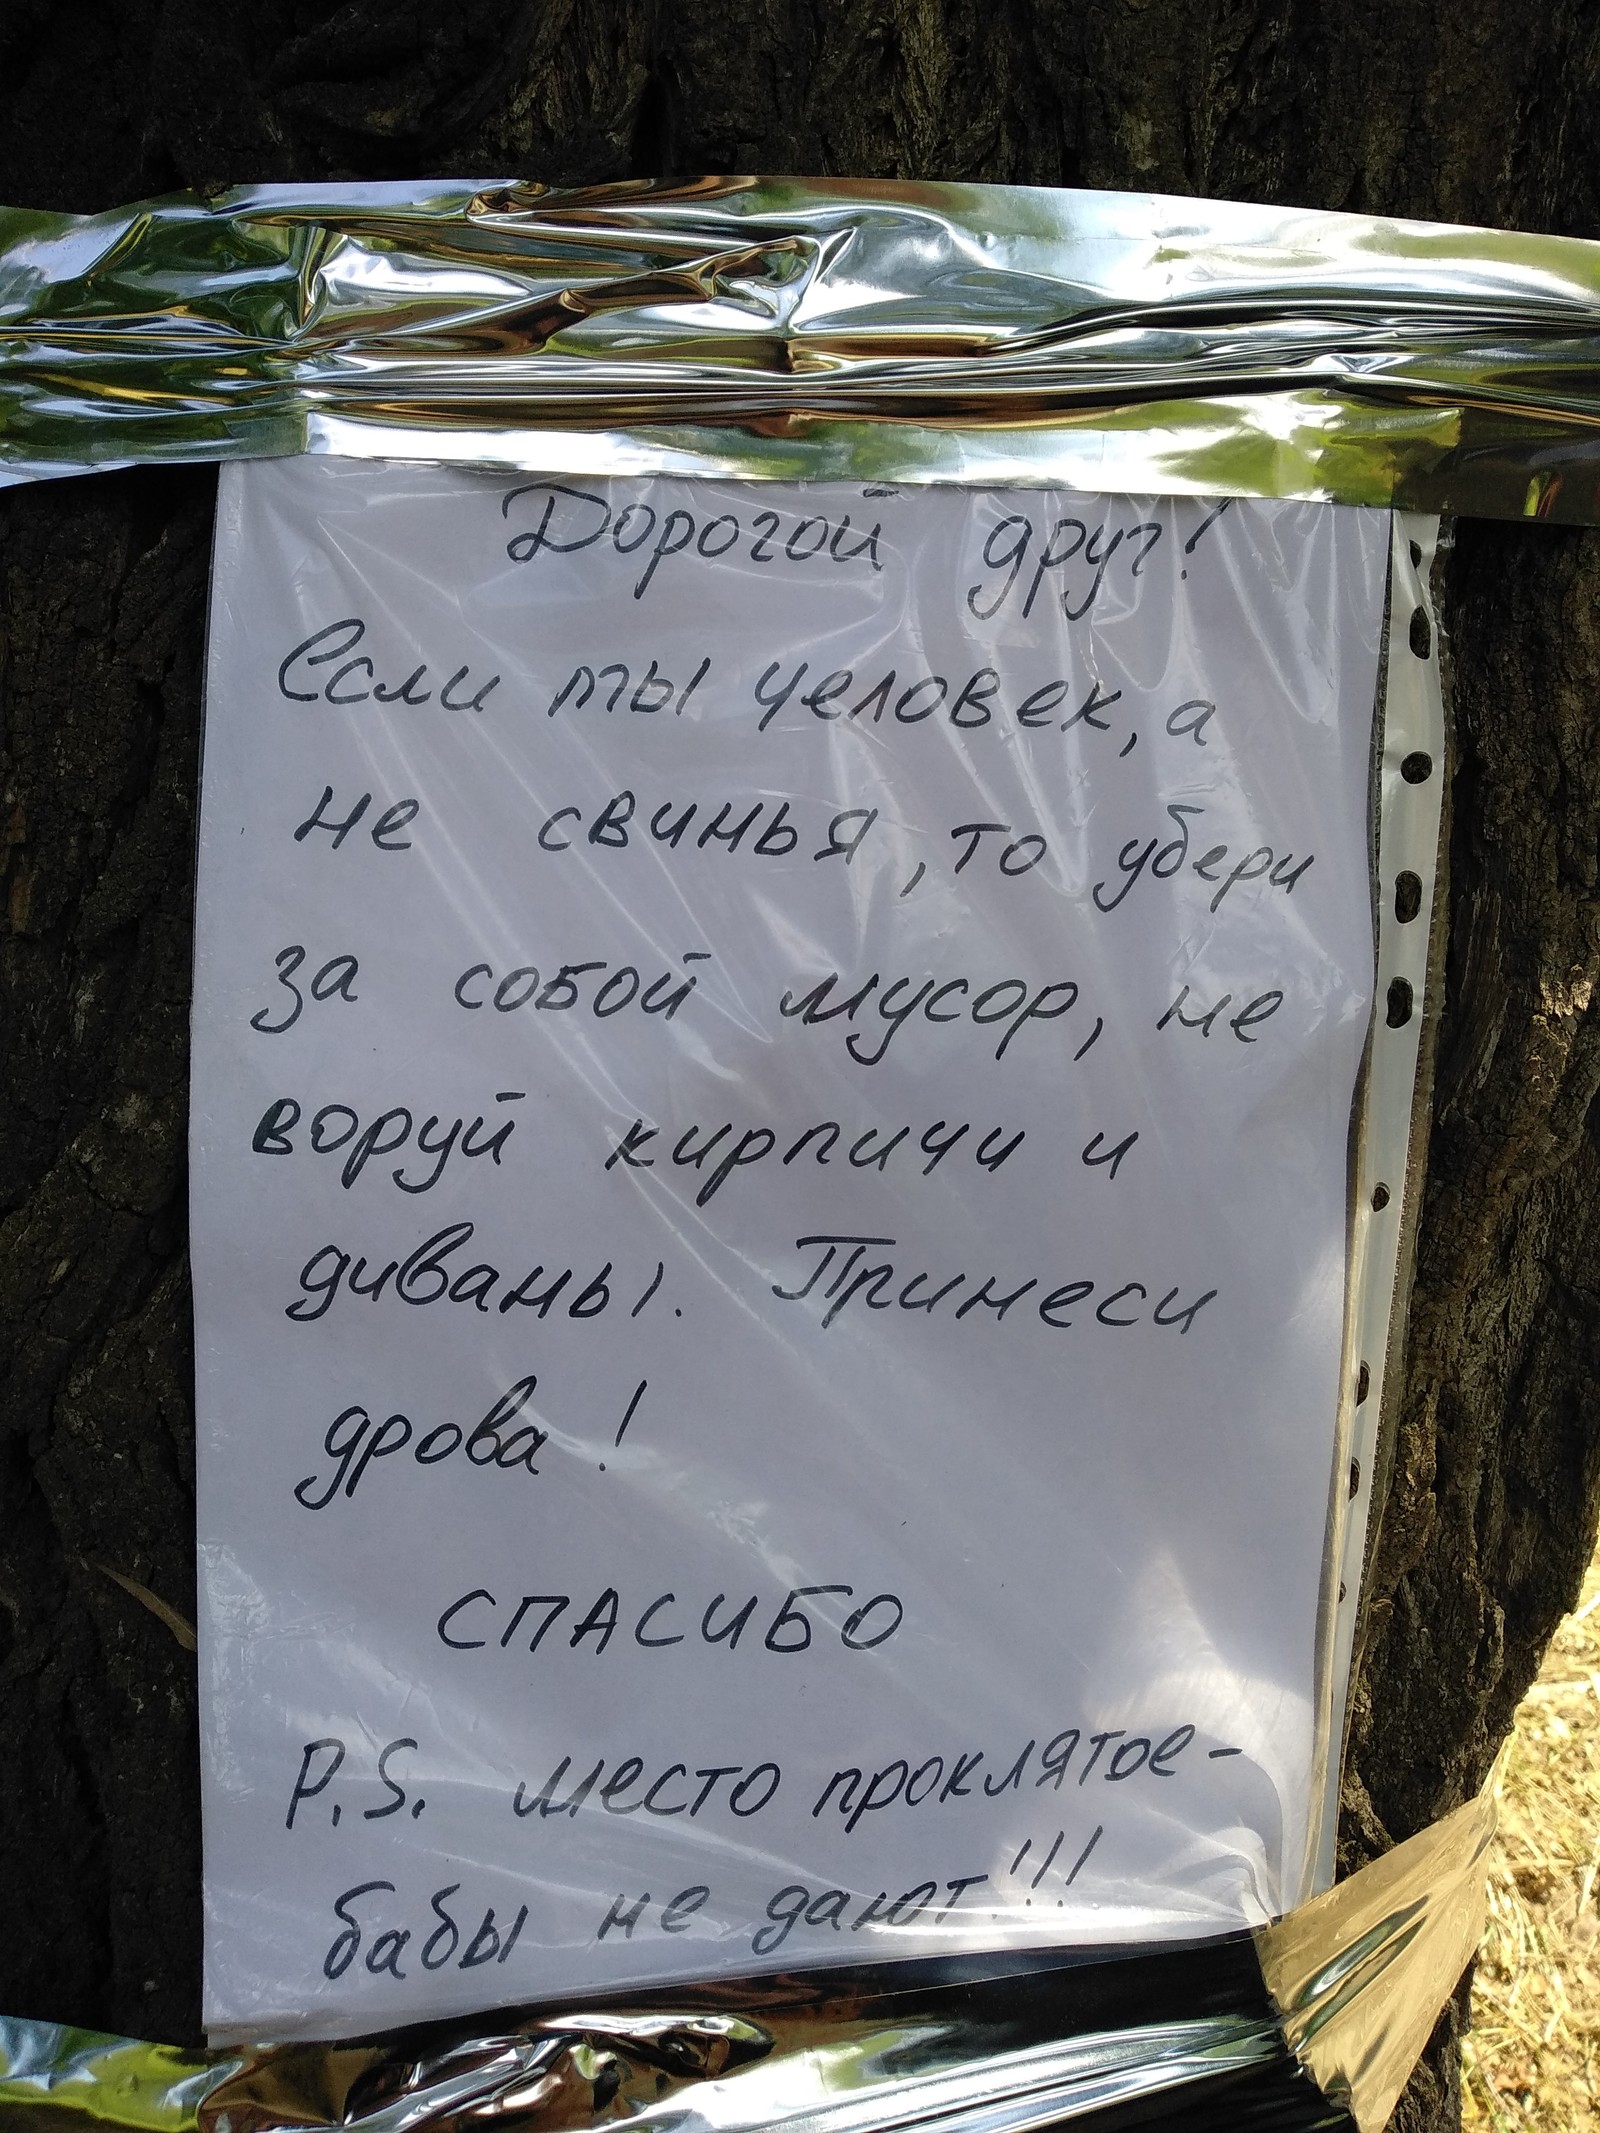 Дорогой друг!
Если ты человек, а
не свинья, то убери
за собой мусор, не
воруй кирпичи и
диваны. Принеси
дрова!
СПАСИБО
P.S. место проклятое -
бабы не дают!!!